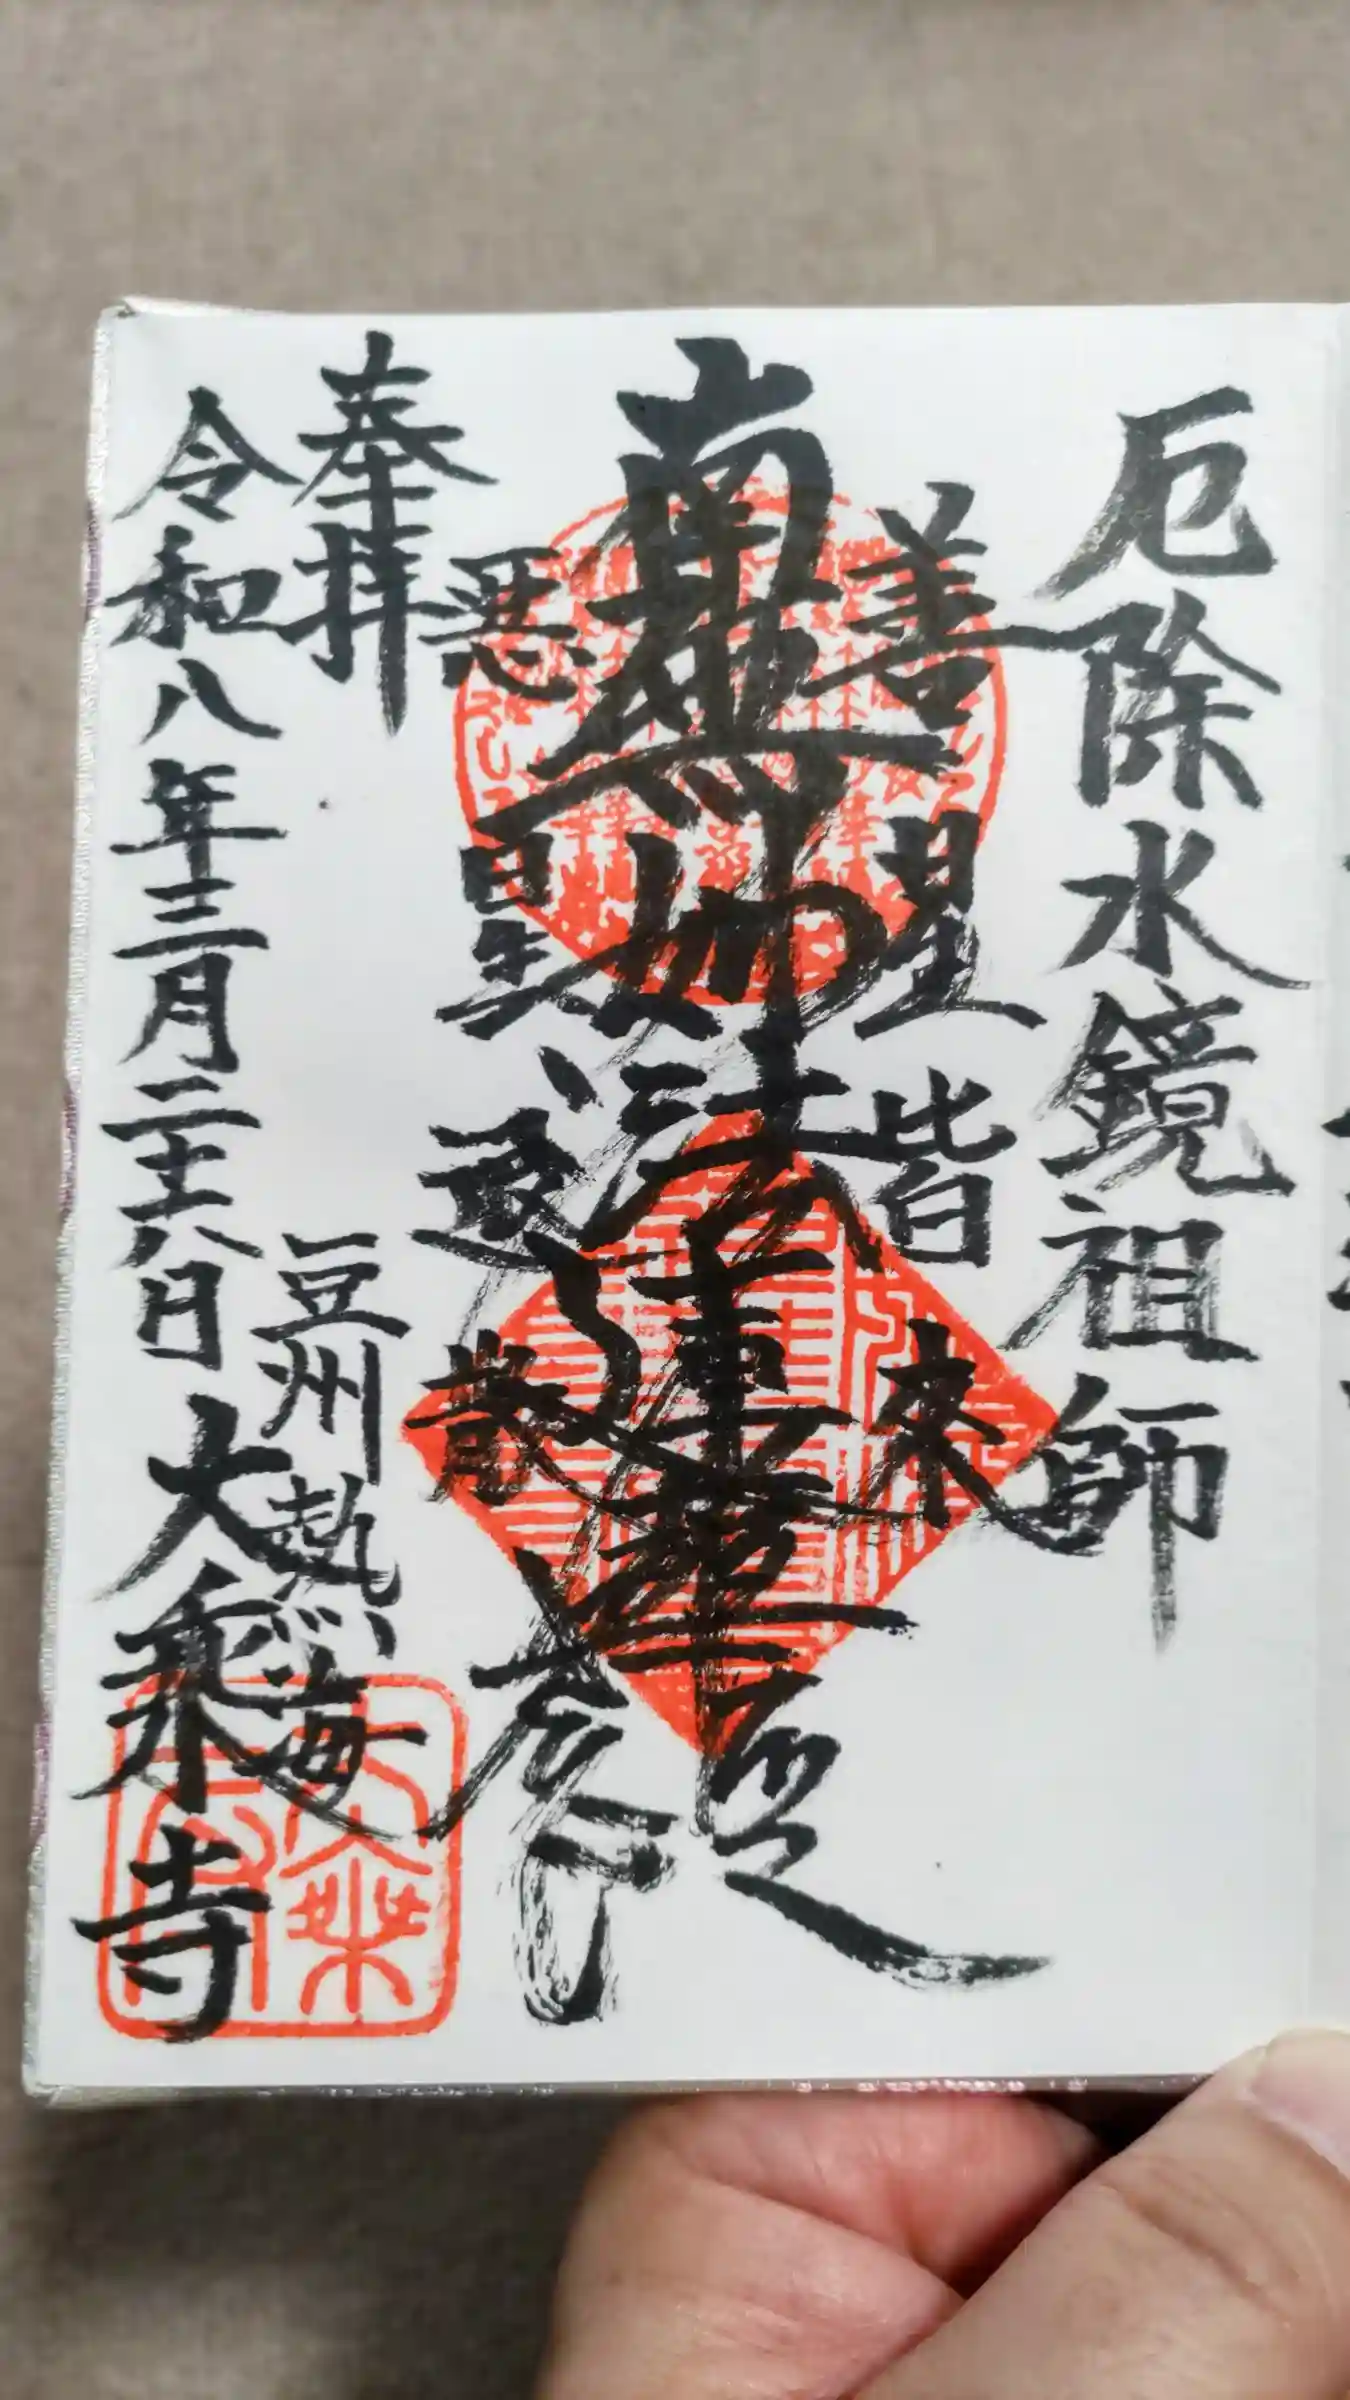 厄除水鏡祖師
善星皆来
南無妙法蓮華経
悪星退散
奉拝
豆州熱海
令和八年三月二十八日
大乗寺